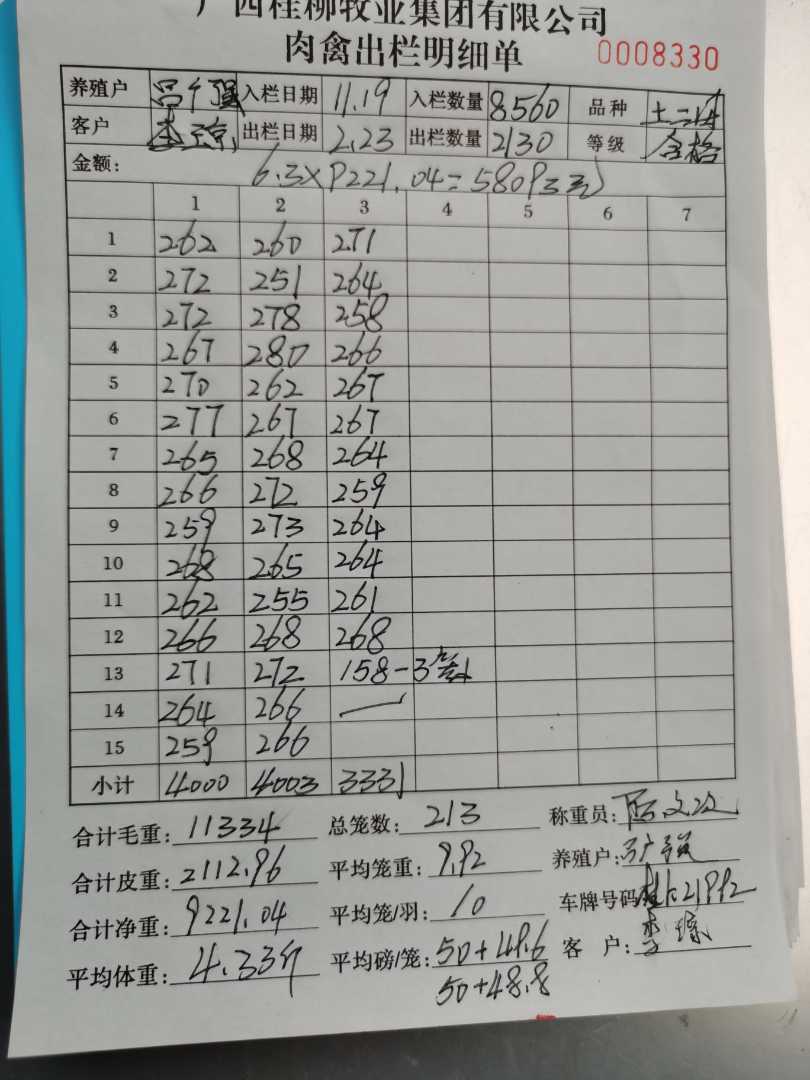 广西桂柳牧业集团有限公司
肉禽出栏明细单 0008330
养殖户 吕 强 入栏日期 11.19 入栏数量 8560 品种 土二
客户 李 琼 出栏日期 2.23 出栏数量 2130 等级 合格
金额: 6.3×9221.04=58093元
1 2 3 4 5 6 7
1 262 260 271
2 272 251 264
3 272 278 258
4 267 280 266
5 270 262 267
6 277 267 267
7 265 268 264
8 266 272 259
9 259 273 264
10 268 265 264
11 262 255 261
12 266 268 268
13 271 272 158-3
14 264 266 —
15 259 266
小计 4000 4003 3331
合计毛重: 11334 总笼数: 213 称重员:
合计皮重: 2112.96 平均笼重: 9.92 养殖户: 强
合计净重: 9221.04 平均笼/羽: 10 车牌号码
平均体重: 4.33斤 平均磅/笼: 50+48.6 客 户: 李 琼
50+48.8